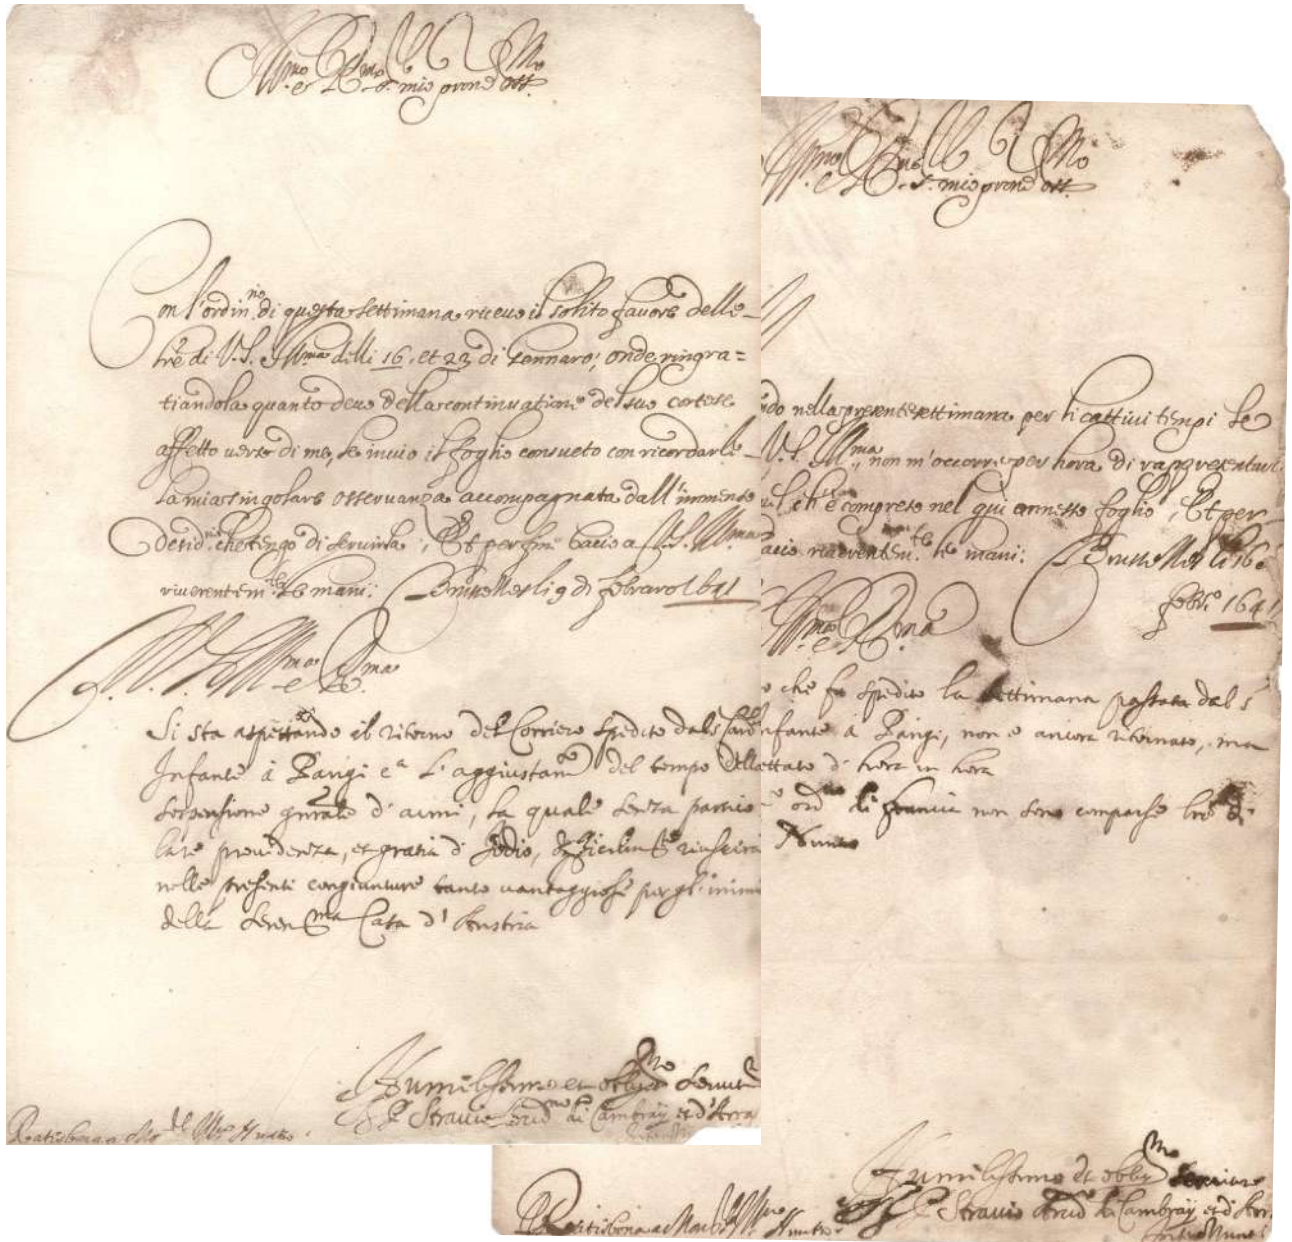 Ill.mo et R.mo S.r mio pron. oss.mo
Con l'ordin.rio di questa settimana riceuo il solito fauore delle
lr̃e di V.S. Ill.ma delli 16. et 23 di Gennaro; onde ringra=
tiandola quanto deuo della continuatione del suo cortese
affetto uerso di me, le inuio il foglio consueto con ricordarle
la mia singolare osseruanza accompagnata dall'immenso
desid.o che tengo di seruirla; Et per fine bacio a V.S. Ill.ma
riuerentem.te le mani. Brusselles li 9 di febraro 1641
V.S. Ill.ma e R.ma
Si sta aspettando il ritorno del Corriero spedito dal S.r Card.
Infante à Parigi c.a l'aggiustam.to del tempo della
sospensione gn̄rale d'armi, la quale senza partico
lare prouidenza, et gratia d'Iddio, riuscirà
nelle presenti congiunture tanto uantaggiose per gl'inimi
della Seren.ma Casa d'Austria
Humilissimo et obblig.mo Seruit.
Strauio Arcid.no di Cambray et d'Arra
Ratisbona Mo.r Ill.mo Nuntio
Ill.mo e R.mo S.r mio pron. oss.mo
do nella presente settimana per li cattiui tempi le
V.S. Ill.ma, non m'occorre per hora di rappresentarl
ch'è compreso nel qui annesso foglio; Et per
bacio riuerentem.te le mani. Brusselles li 16
febr.o 1641
Ill.ma e R.ma
che fu spedito la settimana passata dal S.
nfante à Parigi, non è ancora ritornato, ma
ettato d'hora in hora
ord.rio di Francia non sono comparse lr̃e di
Nuntio
Humilissimo et obblig.mo Seruitore
Strauio Arcid.no di Cambray et d'Arr.
Ratisbona a Mons.r Ill.mo Nuntio